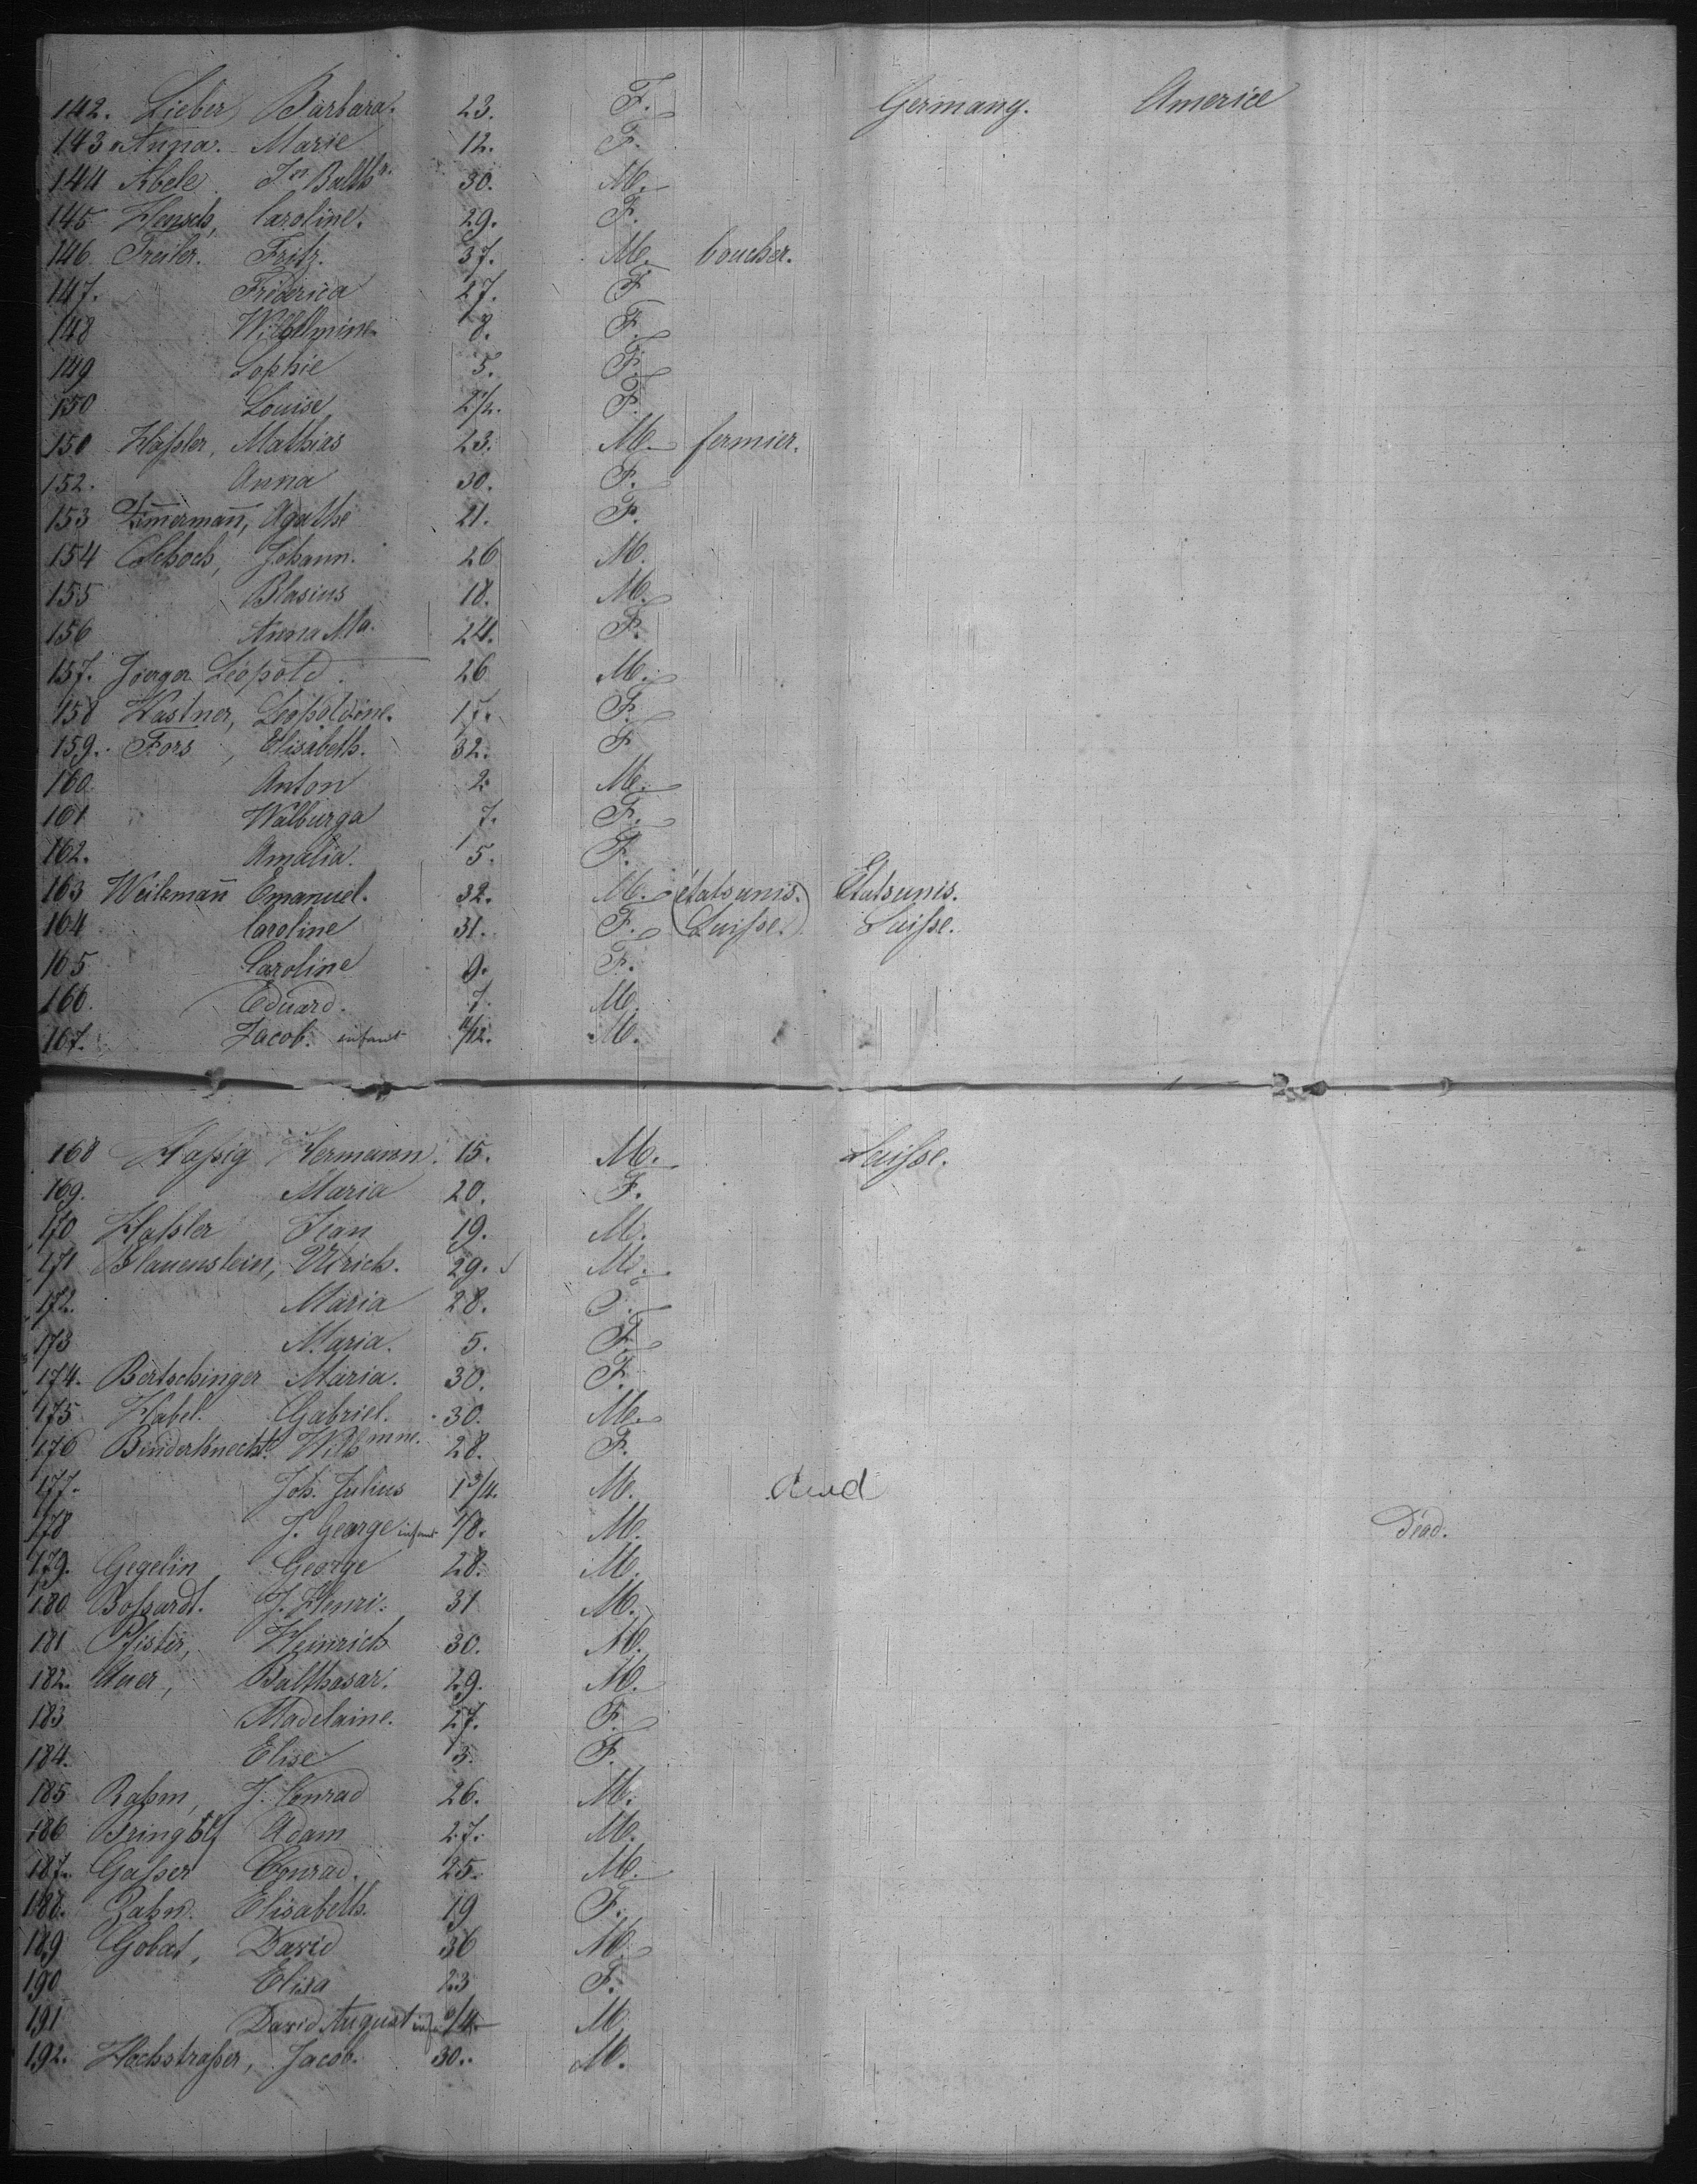 142. Lieber Barbara. 23. F. Germany. America
143 Anna. Marie 12. F.
144 Abele. Jn Balthr. 30. M.
145 Hensch, Caroline. 29. F.
146 Treiler. Fritz. 37. M. boucher.
147. Friderica 27. F
148 Wilhelmine 8. F.
149 Sophie 5. F.
150 Louise 2 1/2. F.
150 Haßler, Mathias 23. M. fermier.
152. Anna 30. F.
153 Zim̄erman̄, Agathe 21. F.
154 Johann. 26 M.
155 Blasius 18. M.
156 Anna Ma. 24. F.
157. Joerger Léopold. 26 M.
158 Wastner, Léopoldine. 17. F.
159. Fors, Elisabeth. 32. F
160 Anton 2. M.
161 Walburga 7. F.
162. Amalia. 5. F.
163 Weileman̄ Emanuel. 32. M. (états unis.) Etatsunis.
164 Caroline 31. F. (Suiſse.) Suiſse.
165 Caroline 9. F.
166. Eduard. 7. M.
167. Jacob. infant 11/12. M.
168 Haßig Hermann. 15. M. Suiſse.
169. Maria 20. F.
170 Haßler Jean 19. M.
171 Blauenstein, Ulrich. 29. M.
172. Maria 28. F.
173 Maria. 5. F.
174. Bertschinger Maria. 30. F.
175 Habel. Gabriel. 30. M.
176 Binderknecht. Wilhmne. 28. F.
177. Joh. Julius 1 3/4. M. dead
178 J. George infant 1/8. M. Déad.
179. Gegelin George 28. M.
180 Boßardt. J. Henri. 31 M.
181 Pfister, Heinrich 30. M.
182. Auer, Balthasar. 29. M.
183 Madelaine. 27. F.
184. Elise 3. F.
185 Rahm, J. Conrad 26. M.
186 Adam 27. M.
187. Gaßer Conrad. 25. M.
188. Zahn. Elisabeth. 19 F.
189 Gobat, David 36 M.
190 Elisa 23 F.
191 David August M.
192. Hochstraßer, Jacob. 30. M.